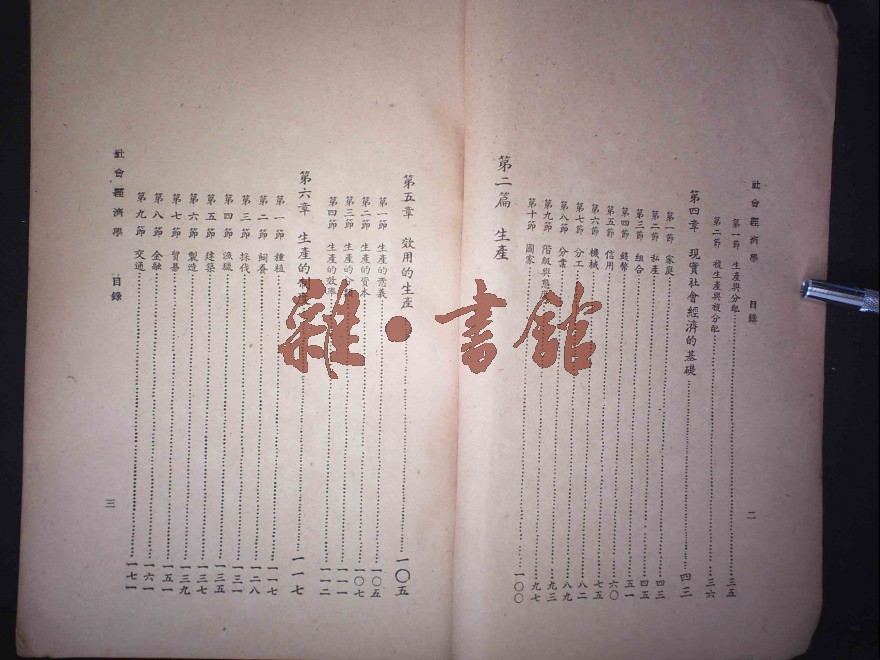 社會經濟學 目錄
二
第一節 生產與分配 三五
第二節 複生產與複分配 三六
第四章 現實社會經濟的基礎 四三
第一節 家庭 四三
第二節 私產 四五
第三節 組合 四四
第四節 錢幣 五一
第五節 信用 六〇
第六節 機械 七五
第七節 分工 八二
第八節 分業 八九
第九節 階級與 九三
第十節 國家 九七
一〇〇
第二篇 生產
第五章 效用的生產 一〇五
第一節 生產的意義 一〇五
第二節 生產的資本 一〇七
第三節 生產的分 一一一
第四節 生產的效率 一一二
第六章 生產的制度 一一七
第一節 種植 一一七
第二節 飼養 一二八
第三節 採伐 一三一
第四節 漁獵 一三五
第五節 建築 一三七
第六節 製造 一三九
第七節 貿易 一五一
第八節 金融 一六一
第九節 交通 一七一
社會經濟學 目錄
三
雜·書館